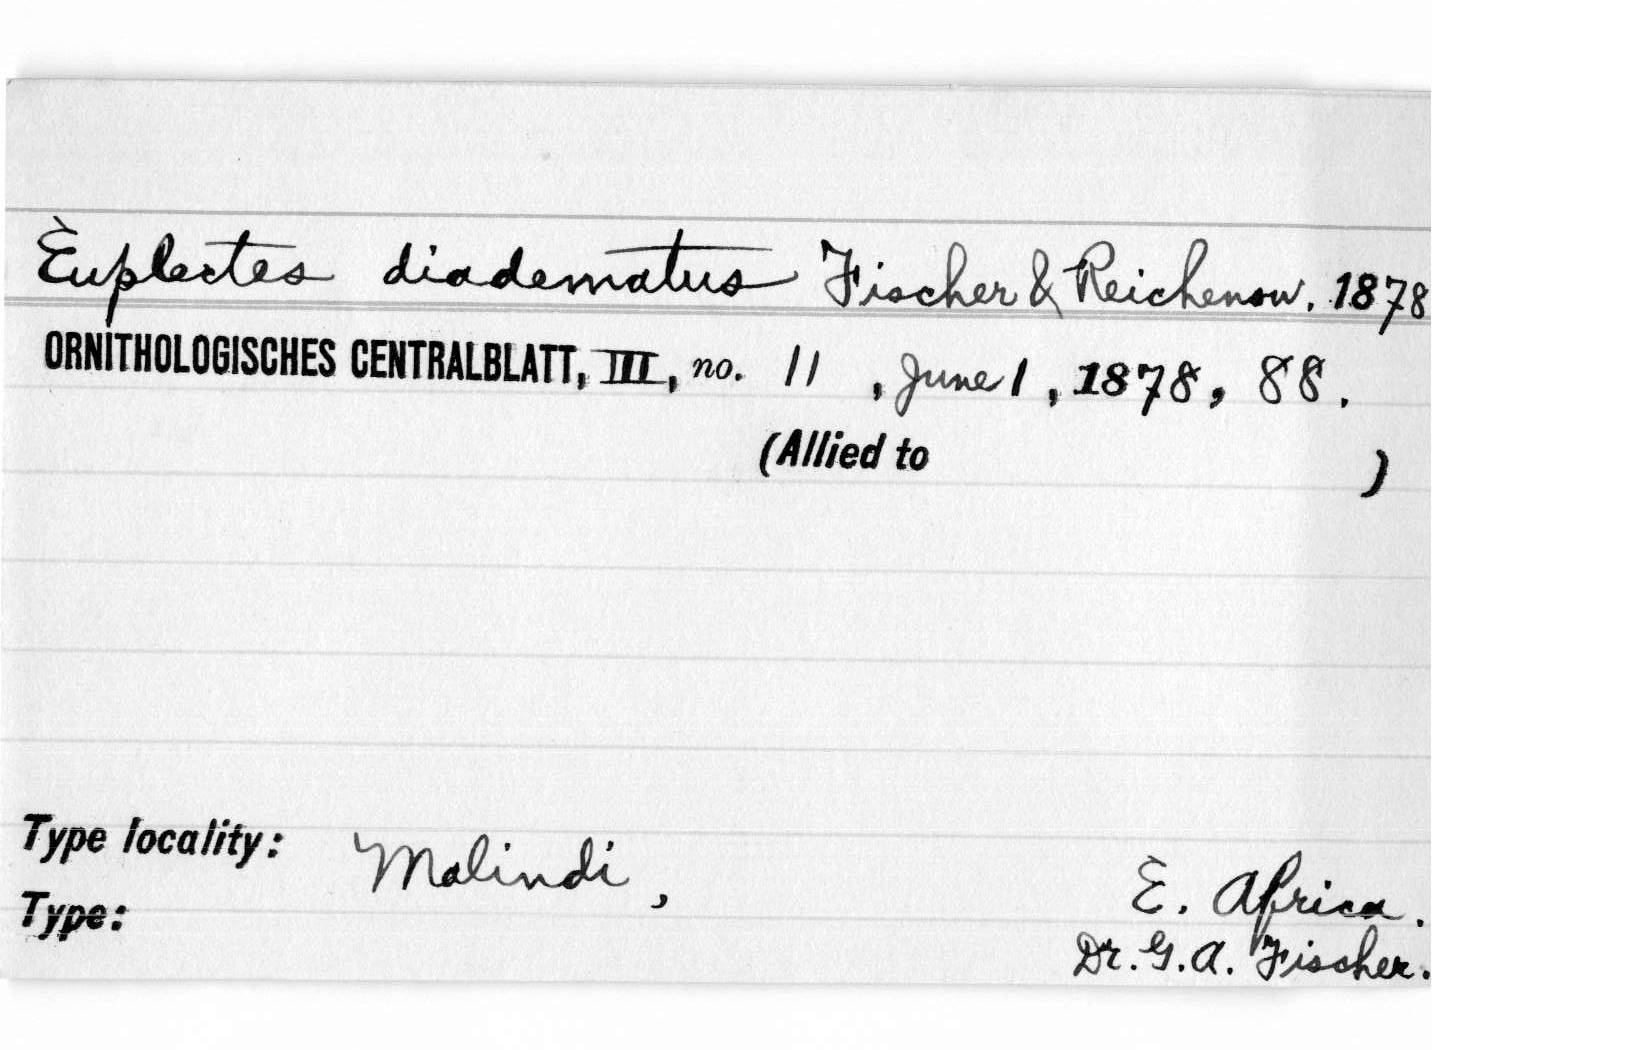 Euplectes diadematus Fischer & Reichenow, 1878
ORNITHOLOGISCHES CENTRALBLATT, III, no. 11, June 1, 1878, 88.
(Allied to )
Type locality: Malindi, E. Africa.
Type: Dr. G. A. Fischer.